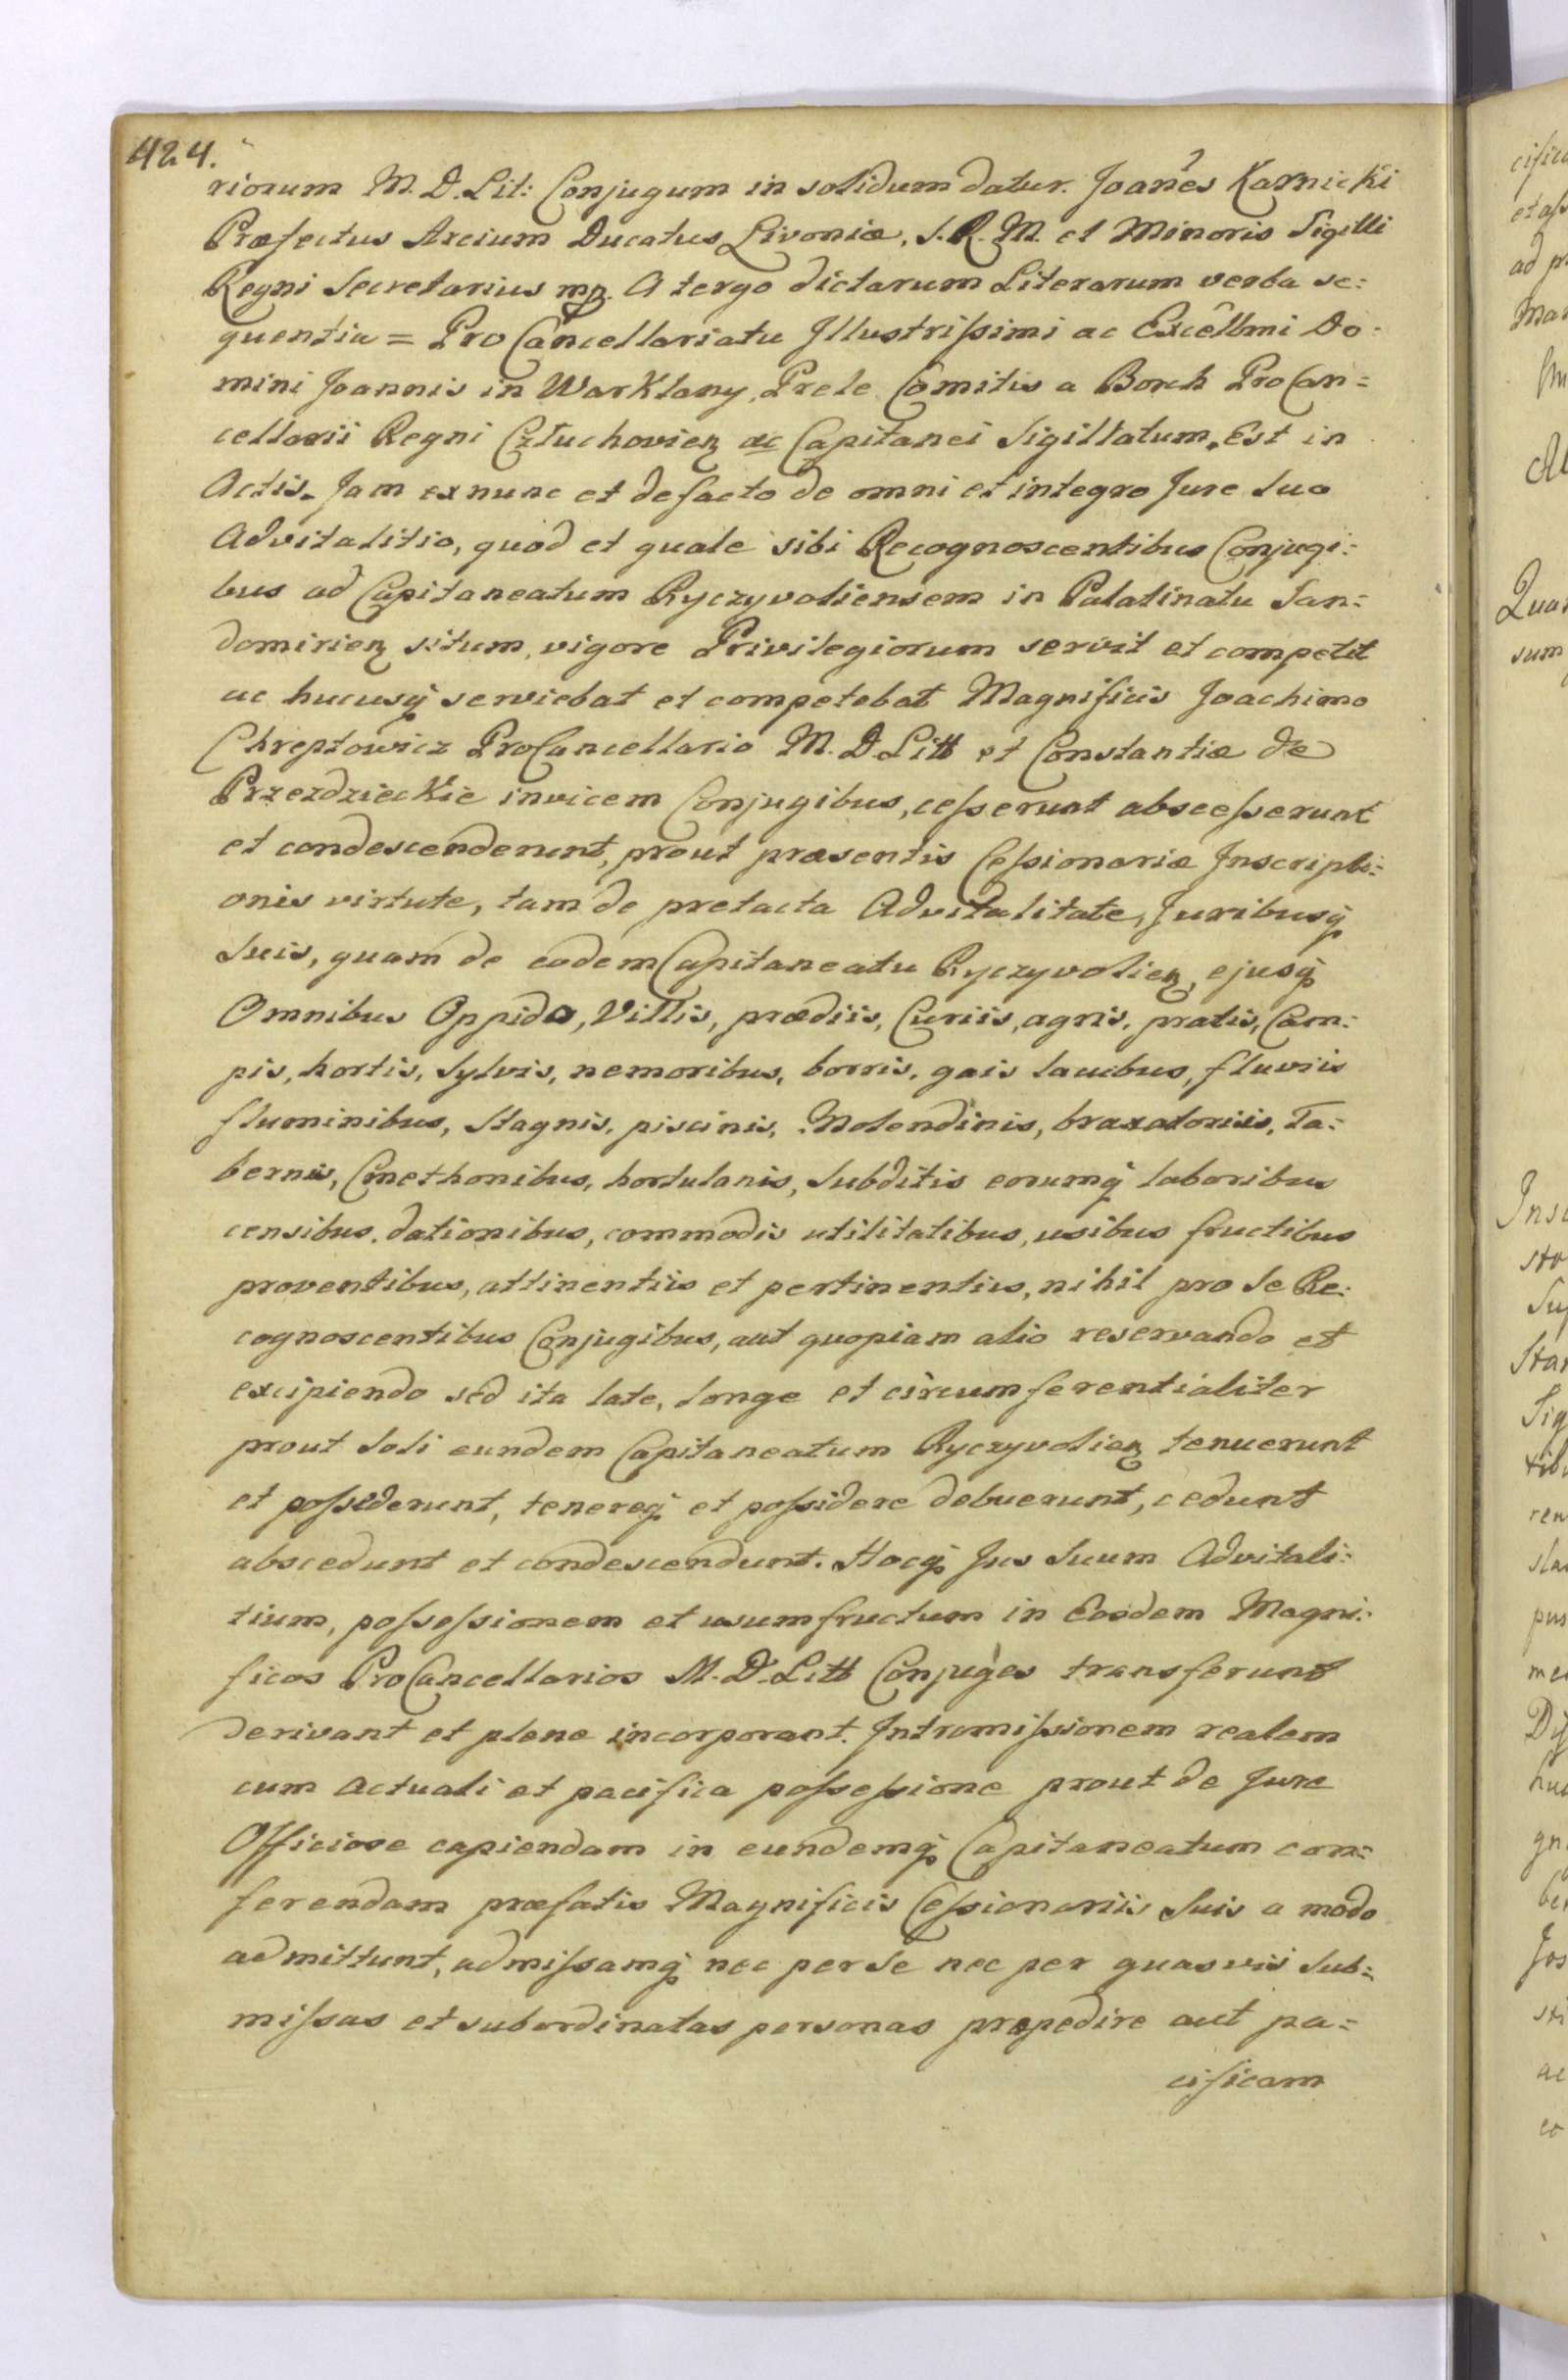 424.
riorum M. D. Lit: Conjugum in solidum datur. Joañes Karnicki
Præfectus Arcium Ducatus Livoniæ, S. R. M. et Minoris Sigilli
Regni Secretarius mp. A tergo dictarum Literarum verba se:
quentia = ProCancellariatu Jllustrißimi ac Excêllmi Do:
mini Joannis in Warklany, Prele Comitis a Borch ProCan=
cellarii Regni Człuchovieņ ac Capitanei Sigillatum. Est in
Actis. Jam ex nunc et de facto de omni et integro Jure Suo
Advitalitio, quod et quale sibi Recognoscentibus Conjugi:
bus ad Capitaneatum Ryczyvoliensem in Palatinatu San:
domirieņ situm, vigore Privilegiorum servit et competit
ac hucusq̃ serviebat et competebat Magnificis Joachimo
Chreptowicz ProCancellario M. D. Litt et Constantiæ de
Przezdzieckie invicem Conjugibus, ceßerunt absceßerunt
et condescenderunt, prout præsentis Ceßionariæ Jnscripti:
onis virtute, tam de pretacta Advitalitate, Juribusq̃
Suis, quam de eodem Capitaneatu Ryczyvolieņ, ejusq̃
Omnibus Oppido, Villis, prædiis, Curiis, agris, pratis, Cam:
pis, hortis, Sylvis, nemoribus, borris, gais lacubus, fluviis
fluminibus, Stagnis, piscinis, Molendinis, braxatoriis, Ta:
bernis, Cmethonibus, hortulanis, Subditis eorumq̃ laboribus
censibus, dationibus, commodis utilitatibus, usibus fructibus
proventibus, attinentiis et pertinentiis, nihil pro Se Re:
cognoscentibus Conjugibus, aut quopiam alio reservando et
excipiendo sed ita late, longe et circumferentialiter
prout Soli eundem Capitaneatum Ryczyvolieņ tenuerunt
et poßiderunt, tenereq̃ et poßidere debuerunt, cedunt
abscedunt et condescendunt. Hocq̃ Jus Suum Advitali:
tium, poßeßionem et usumfructum in Eosdem Magni:
ficos ProCancellarios M. D. Litt Conjuges transferunt
derivant et plene incorporant. Jntromißionem realem
cum Actuali et pacifica poßeßione prout de Jure
Officiose capiendam in eundemq̃ Capitaneatum con=
ferendam præfatis Magnificis Ceßionariis Suis a modo
admittunt, admißamq̃ nec per Se nec per quasvis Sub=
mißas et subordinatas personas præpedire aut pa=
cificam